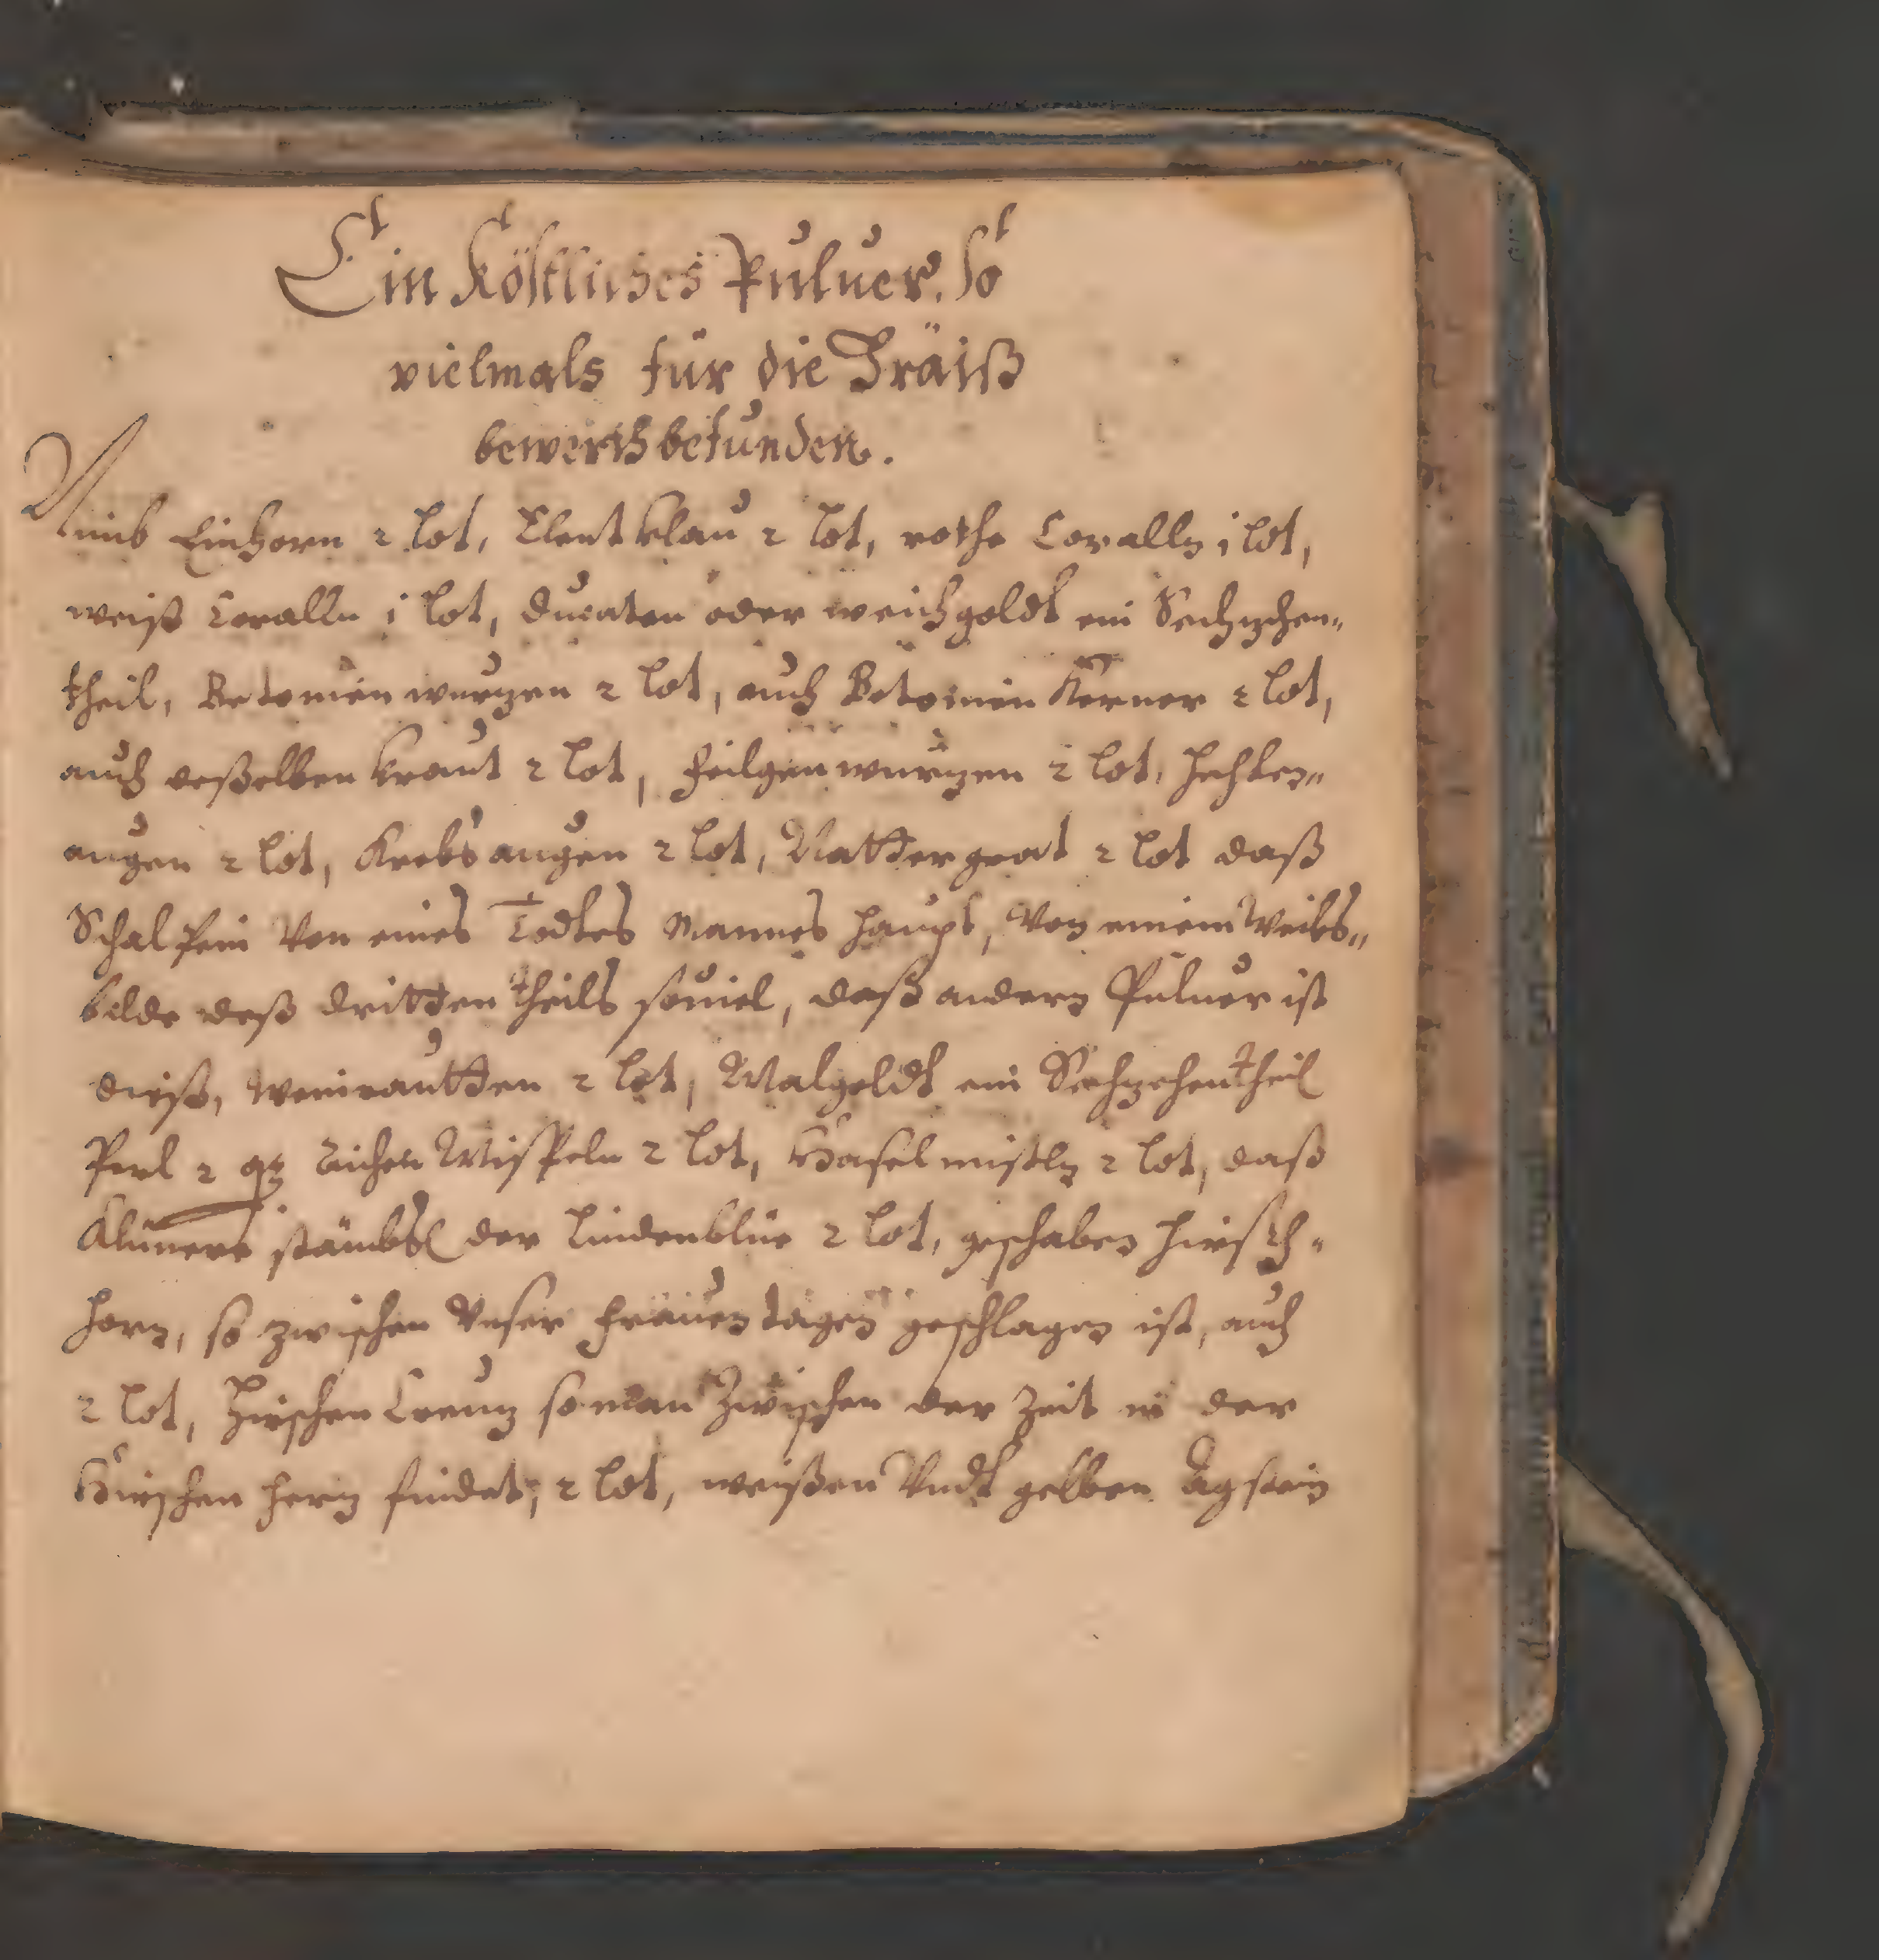 Ein Köstliches Puluer, so
vielmals für die Fräiß
bewerth befunden.
Nimb Einhorn 2 lot, Elentklau 2 lot, rothe Coralln 1 lot,
weiß Coralln 1 lot, ducaten oder weichgoldt ein Sechzehen„
theil, Betonien wurzen 2 lot, auch Betonien Kerner 2 lot,
auch deßelben kraut 2 lot, feilgen wurzen 2 lot, Hechten„
augen 2 lot, Krebs augen 2 lot, Natter grat 2 lot daß
Schal sein Von eines Todtes Mannes Haupt, Von einem Weibs„
bilde deß dritten theils souiel, daß andern Puluer ist
dieß, Weinrautten 2 lot, Malgoldt ein Sechzehentheil
Perl 2 qz Eichen Mispeln 2 lot, Haselmistln 2 lot, daß
stäubs der Lindenblüe 2 lot, geschaben Hirsch„
horn, so zwischen Unser frauen tagen geschlagen ist, auch
2 lot, Hirschen Creuz so man Zwischen der Zeit in der
Hirschen Herz findet, 2 lot, weißen Undt gelben Agstein